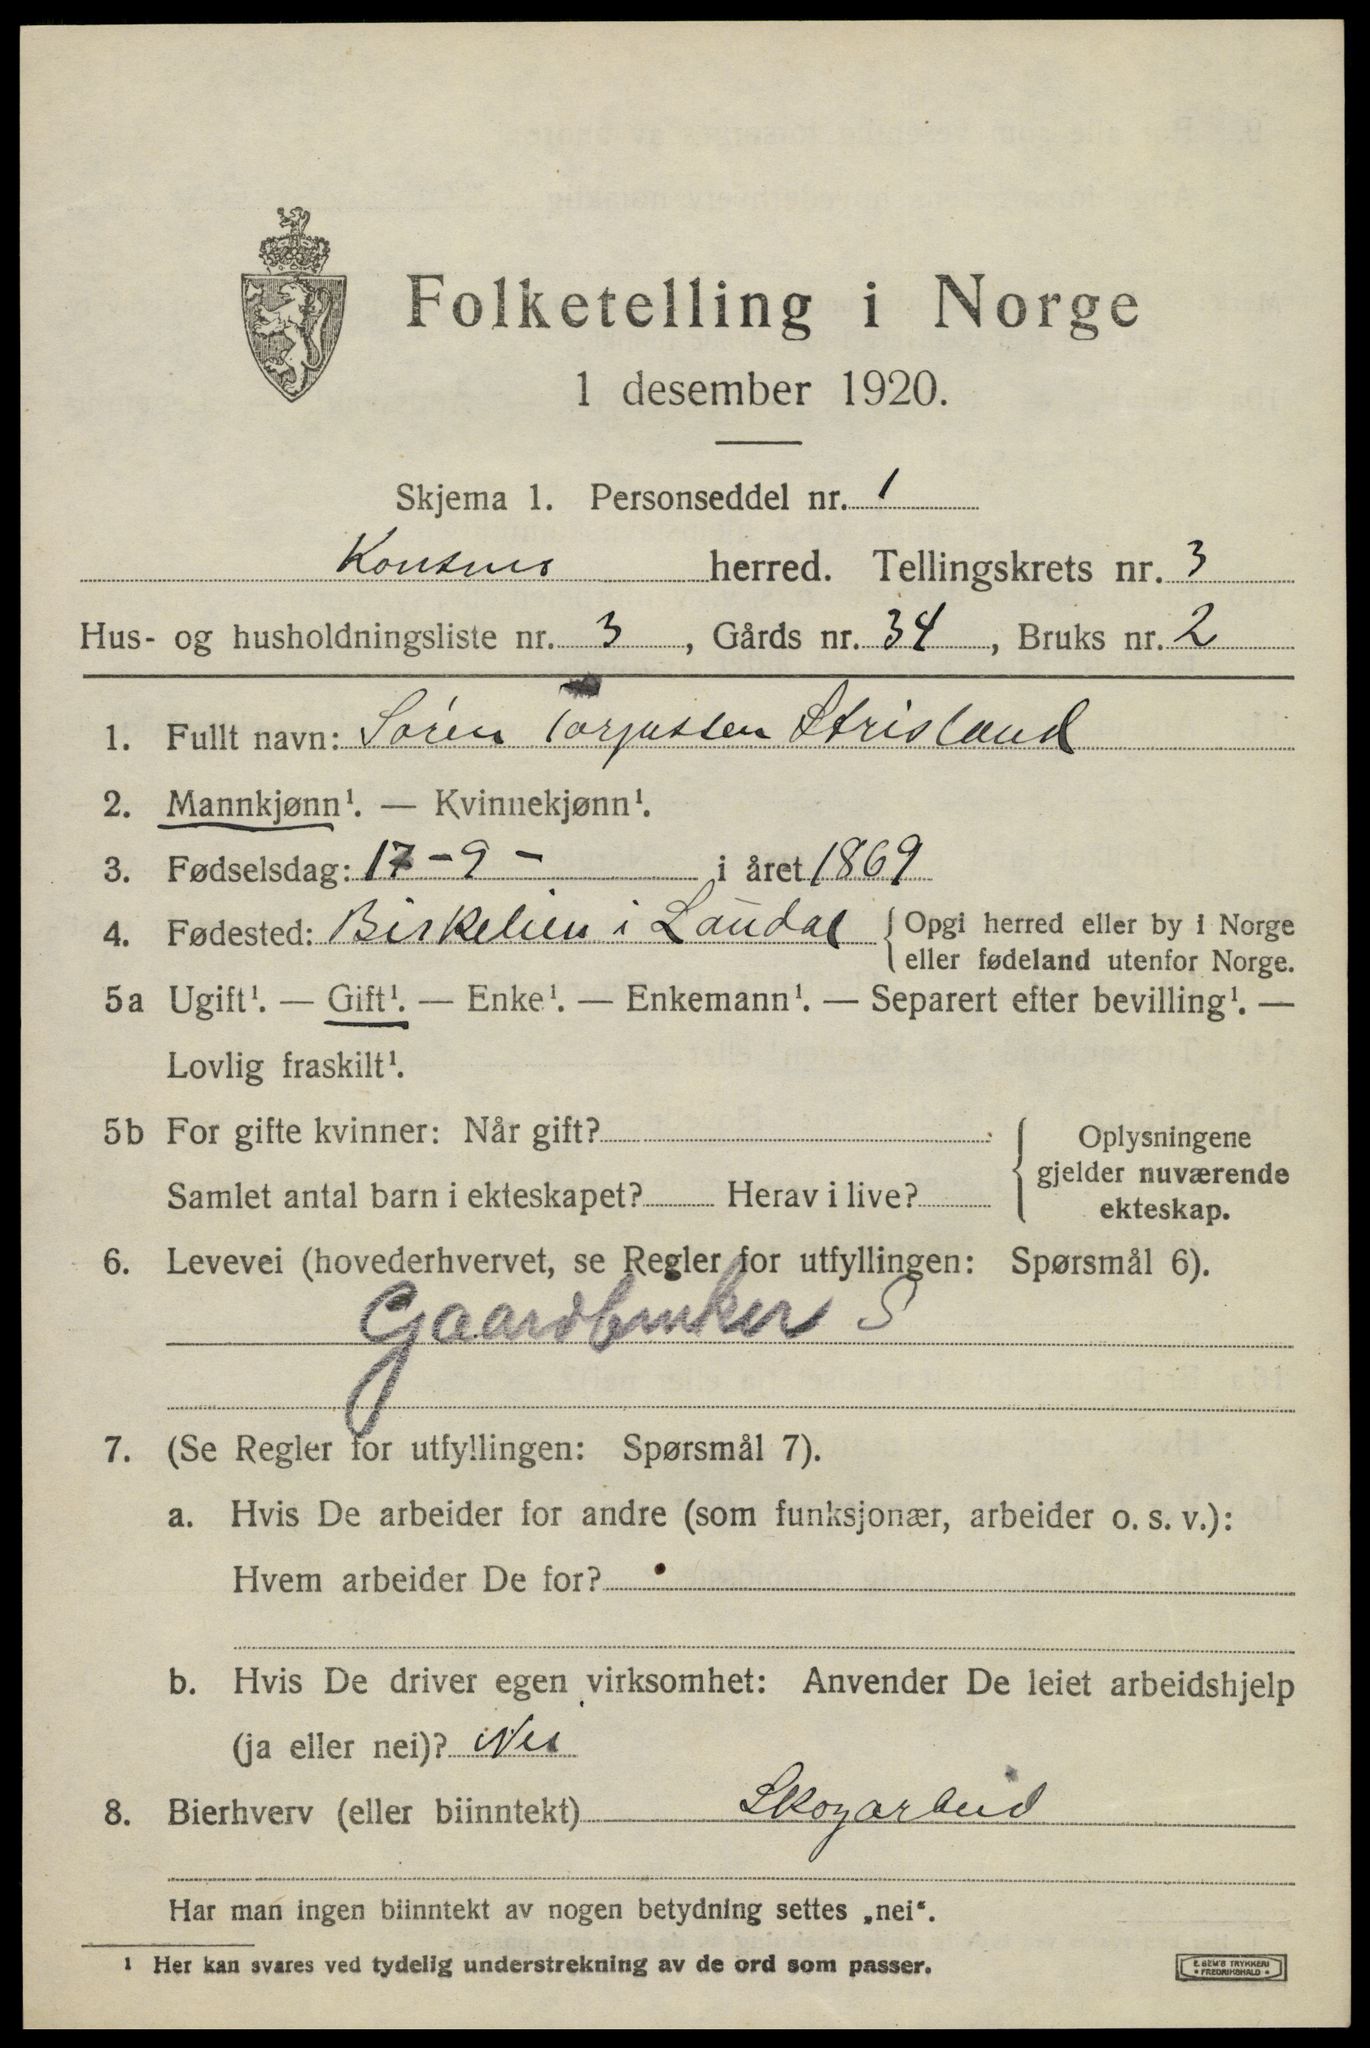 Folketelling i Norge
1 desember 1920.
Skjema 1. Personseddel nr. 1
Konsmo herred. Tellingskrets nr. 3
Hus- og husholdningsliste nr. 3, Gårds nr. 34, Bruks nr. 2
1. Fullt navn: Sören Torjussen Strisland
2. Mannkjønn¹. — Kvinnekjønn¹.
3. Fødselsdag: 17-9- i året 1869
4. Fødested: Birkelien i Laudal { Opgi herred eller by i Norge
eller fødeland utenfor Norge.
5a Ugift¹. — Gift¹. — Enke¹. — Enkemann¹. — Separert efter bevilling¹. —
Lovlig fraskilt¹.
5b For gifte kvinner: Når gift?
Samlet antal barn i ekteskapet? Herav i live?
Oplysningene
gjelder nuværende
ekteskap.
6. Levevei (hovederhvervet, se Regler for utfyllingen: Spørsmål 6).
Gaardbruker S
7. (Se Regler for utfyllingen: Spørsmål 7).
a. Hvis De arbeider for andre (som funksjonær, arbeider o. s. v.):
Hvem arbeider De for?
b. Hvis De driver egen virksomhet: Anvender De leiet arbeidshjelp
(ja eller nei)? Nei
8. Bierhverv (eller biinntekt) Skogarbeid
Har man ingen biinntekt av nogen betydning settes „nei“.
¹ Her kan svares ved tydelig understrekning av de ord som passer.
E. SEM'S TRYKKERI
FREDRIKSHALD